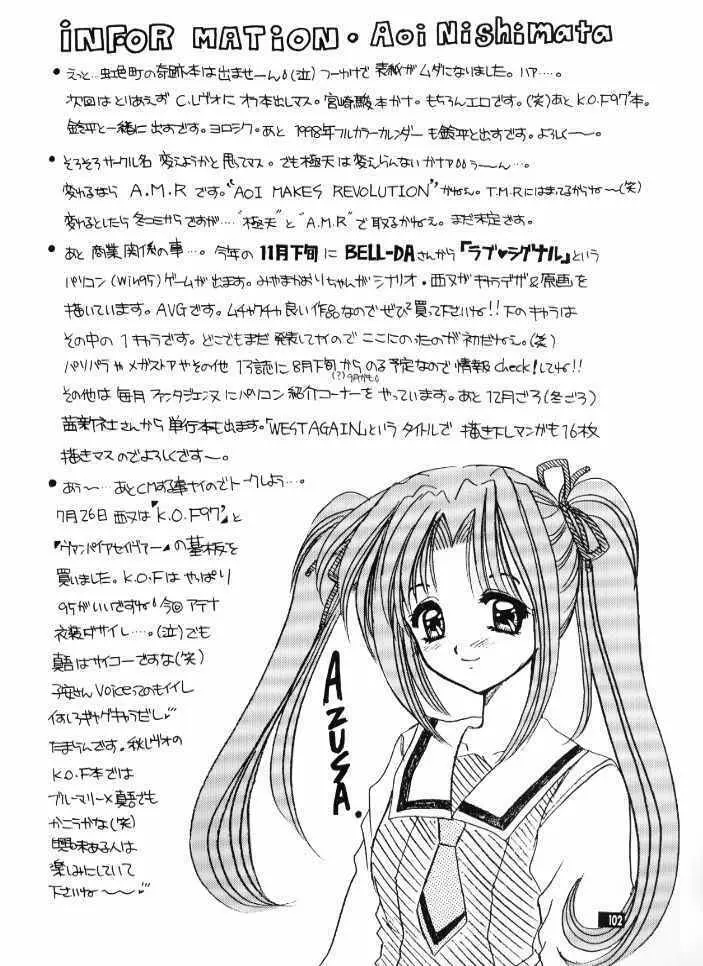 INFORMATION・Aoi Nishimata
●えっと…虹色町の奇跡本は出ませーん💧(泣)つーかけで表紙がムダになりました。ハァ….。
次回はとりあえずC.レヴォにオフ本出しマス。宮崎駿本カナ。もちろんエロです。(笑)あとK.O.F97'本。
鈴平と一緒に出すです。ヨロシク。あと 1998年フルカラーカレンダーも鈴平と出すです。よろしくー〜。
●そろそろサークル名 変えようかと思ってマス。でも極天は変えらんないかナァ うーん…。
変わるなら A.M.R です。"AOI MAKES REVOLUTION"かねぇ。T.M.Rにはまってるからね〜(笑)
変わるとしたら冬コミからですが…."極天"と"A.M.R"で取るかねぇ。まだ未定さ。
●あと 商業関係の事…。今年の11月下旬にBELL-DAさんから「ラブ♥シグナル」という
パソコン(Win95)ゲームが出ます。みやまかおりちゃんがシナリオ・西又がキャラデザ&原画を
描いています。AVGです。ムチャクチャ良い作品なのでぜひ買って下さいね!!下のキャラは
その中の1キャラです。どこでもまだ発表してナイのでここにのったのが初だねぇ。(笑)
パソパラやメガストアやその他 13誌に8月下旬からのる予定なので情報check!してね!!
(?)9月かも💧
その他は毎月ファンタジェンヌにパソコン紹介コーナーをやっています。あと12月ごろ(冬ごろ)
茜新社さんから単行本も出ます。「WEST AGAIN」というタイトルで 描き下しマンガも16枚
描きマスのでよろしくです〜。
●あぅ〜…あとCMする事ナイのでトークしよう…。
7月26日 西又は『K.O.F97'』と
『ヴァンパイアセイヴァー』の基板を
買いました。K.O.Fはやっぱり
95がいいですね💧今回アテナ
衣装ダサイし….。(泣)でも
真吾はサイコーですな(笑)
子安さんVoiceってのもイイし
何しろギャグキャラだし
たまらんです。秋レヴォの
K.O.F本では
ブルーマリー×真吾でも
かこうかな(笑)
興味ある人は
楽しみにしていて
下さいね〜〜
AZUSA.
102